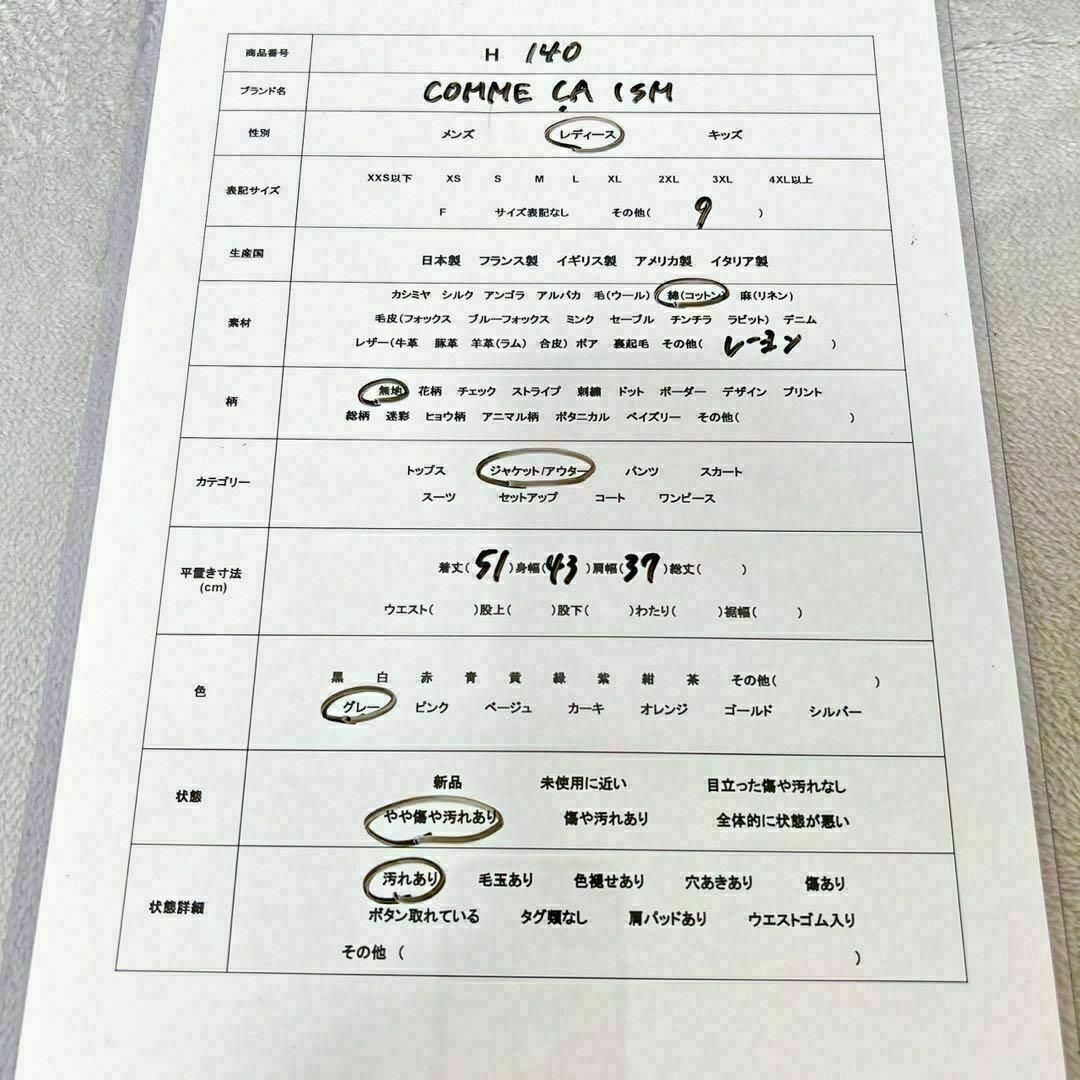 商品番号 H 140
ブランド名 COMME ÇA ISM
性別 メンズ レディース キッズ
表記サイズ XXS以下 XS S M L XL 2XL 3XL 4XL以上
F サイズ表記なし その他( 9 )
生産国 日本製 フランス製 イギリス製 アメリカ製 イタリア製
素材 カシミヤ シルク アンゴラ アルパカ 毛(ウール) 綿(コットン) 麻(リネン)
毛皮(フォックス ブルーフォックス ミンク セーブル チンチラ ラビット) デニム
レザー(牛革 豚革 羊革(ラム) 合皮) ボア 裏起毛 その他( レーヨン )
柄 無地 花柄 チェック ストライプ 刺繍 ドット ボーダー デザイン プリント
総柄 迷彩 ヒョウ柄 アニマル柄 ボタニカル ペイズリー その他( )
カテゴリー トップス ジャケット/アウター パンツ スカート
スーツ セットアップ コート ワンピース
平置き寸法 (cm) 着丈( 51 )身幅( 43 )肩幅( 37 )総丈( )
ウエスト( )股上( )股下( )わたり( )裾幅( )
色 黒 白 赤 青 黄 緑 紫 紺 茶 その他( )
グレー ピンク ベージュ カーキ オレンジ ゴールド シルバー
状態 新品 未使用に近い 目立った傷や汚れなし
やや傷や汚れあり 傷や汚れあり 全体的に状態が悪い
状態詳細 汚れあり 毛玉あり 色褪せあり 穴あきあり 傷あり
ボタン取れている タグ類なし 肩パッドあり ウエストゴム入り
その他 ( )